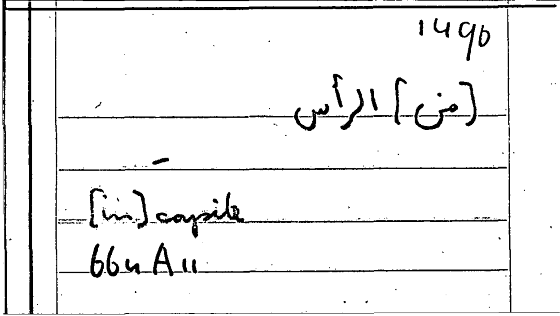 1490
[من] الرأس
–
[in] capite
664 A 11